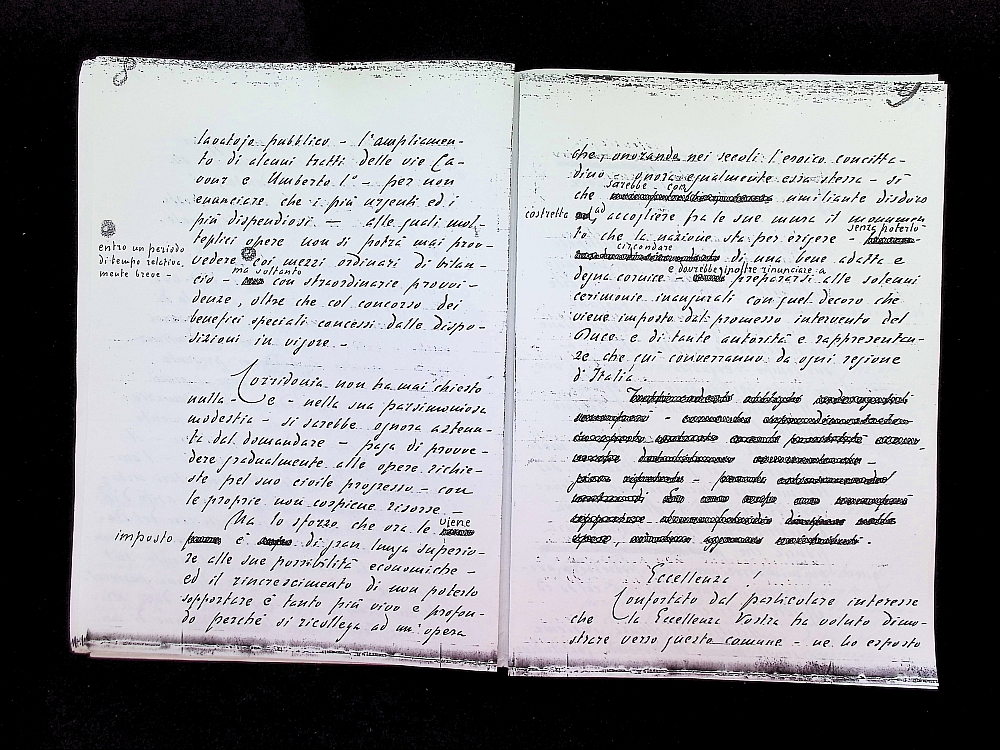 8
lavatojo pubblico - l'ampliamen-
to di alcuni tratti delle vie Ca-
vour e Umberto I° - per non
enunciare che i più urgenti ed i
più dispendiosi - alle quali mol-
teplici opere non si potrà mai prov-
entro un periodo
di tempo relativa-
mente breve -
vedere coi mezzi ordinari di bilan-
ma soltanto
cio - con straordinarie provvi-
denze, oltre che col concorso dei
benefici speciali concessi dalle dispo-
sizioni in vigore. -
Corridonia non ha mai chiesto
nulla - e - nella sua parsimoniosa
modestia - si sarebbe ognora astenu-
ta dal domandare - paga di provve-
dere gradualmente alle opere richie-
ste pel suo civile progresso - con
le proprie non cospicue risorse. -
Ma lo sforzo che ora le viene
imposto è di gran lunga superio-
re alle sue possibilità economiche -
ed il rincrescimento di non poterlo
sopportare è tanto più vivo e profon-
do perché si ricollega ad un'opera
9
che, onorando nei secoli l'eroico concitta-
dino - onora egualmente essa stessa - si
sarebbe - con
che umiliante disdoro
costretta ad accogliere fra le sue mura il monumen-
senza poterlo
to che la nazione sta per erigere -
circondare
di una bene adatta e
e dovrebbe inoltre rinunciare a
degna cornice - prepararsi alle solenni
cerimonie inaugurali con quel decoro che
viene imposto dal promesso intervento del
Duce e di tante autorità e rappresentan-
ze che qui converranno da ogni regione
d'Italia.
Eccellenza!
Confortato dal particolare interesse
che la Eccellenza Vostra ha voluto dimo-
strare verso questo comune - ne ho esposto